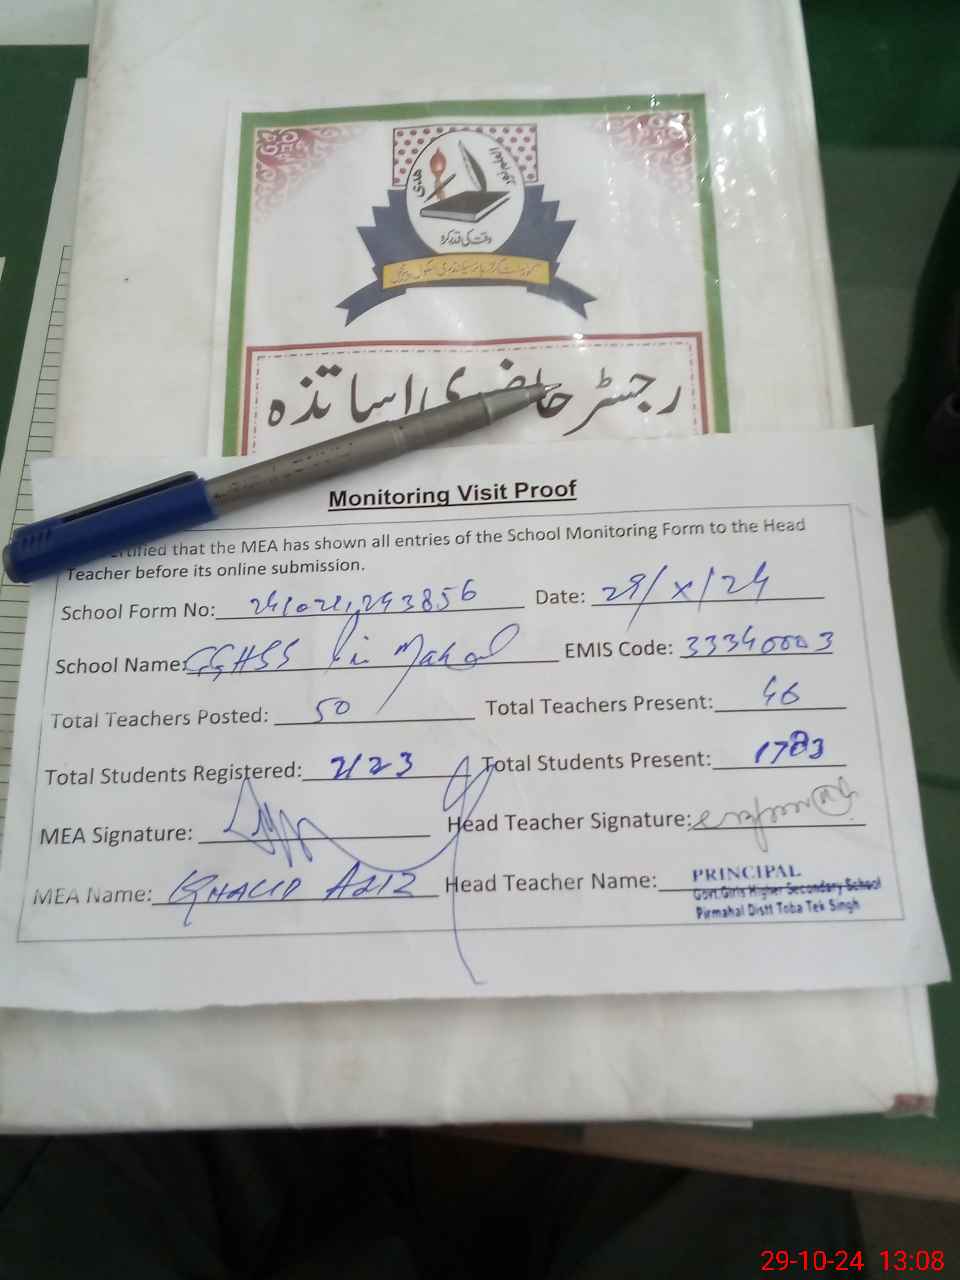 وقت کی قدر کرو
رجسٹر حاضری اساتذہ
Monitoring Visit Proof
certified that the MEA has shown all entries of the School Monitoring Form to the Head
Teacher before its online submission.
School Form No: Date: 29/X/24
School Name: GGHSS Pir Mahal EMIS Code: 33340003
Total Teachers Posted: 50 Total Teachers Present: 46
Total Students Registered: 2123 Total Students Present: 1783
MEA Signature: Head Teacher Signature:
MEA Name: KHALID AZIZ Head Teacher Name: PRINCIPAL
Govt. Girls Higher Secondary School
Pirmahal Distt Toba Tek Singh
29-10-24 13:08